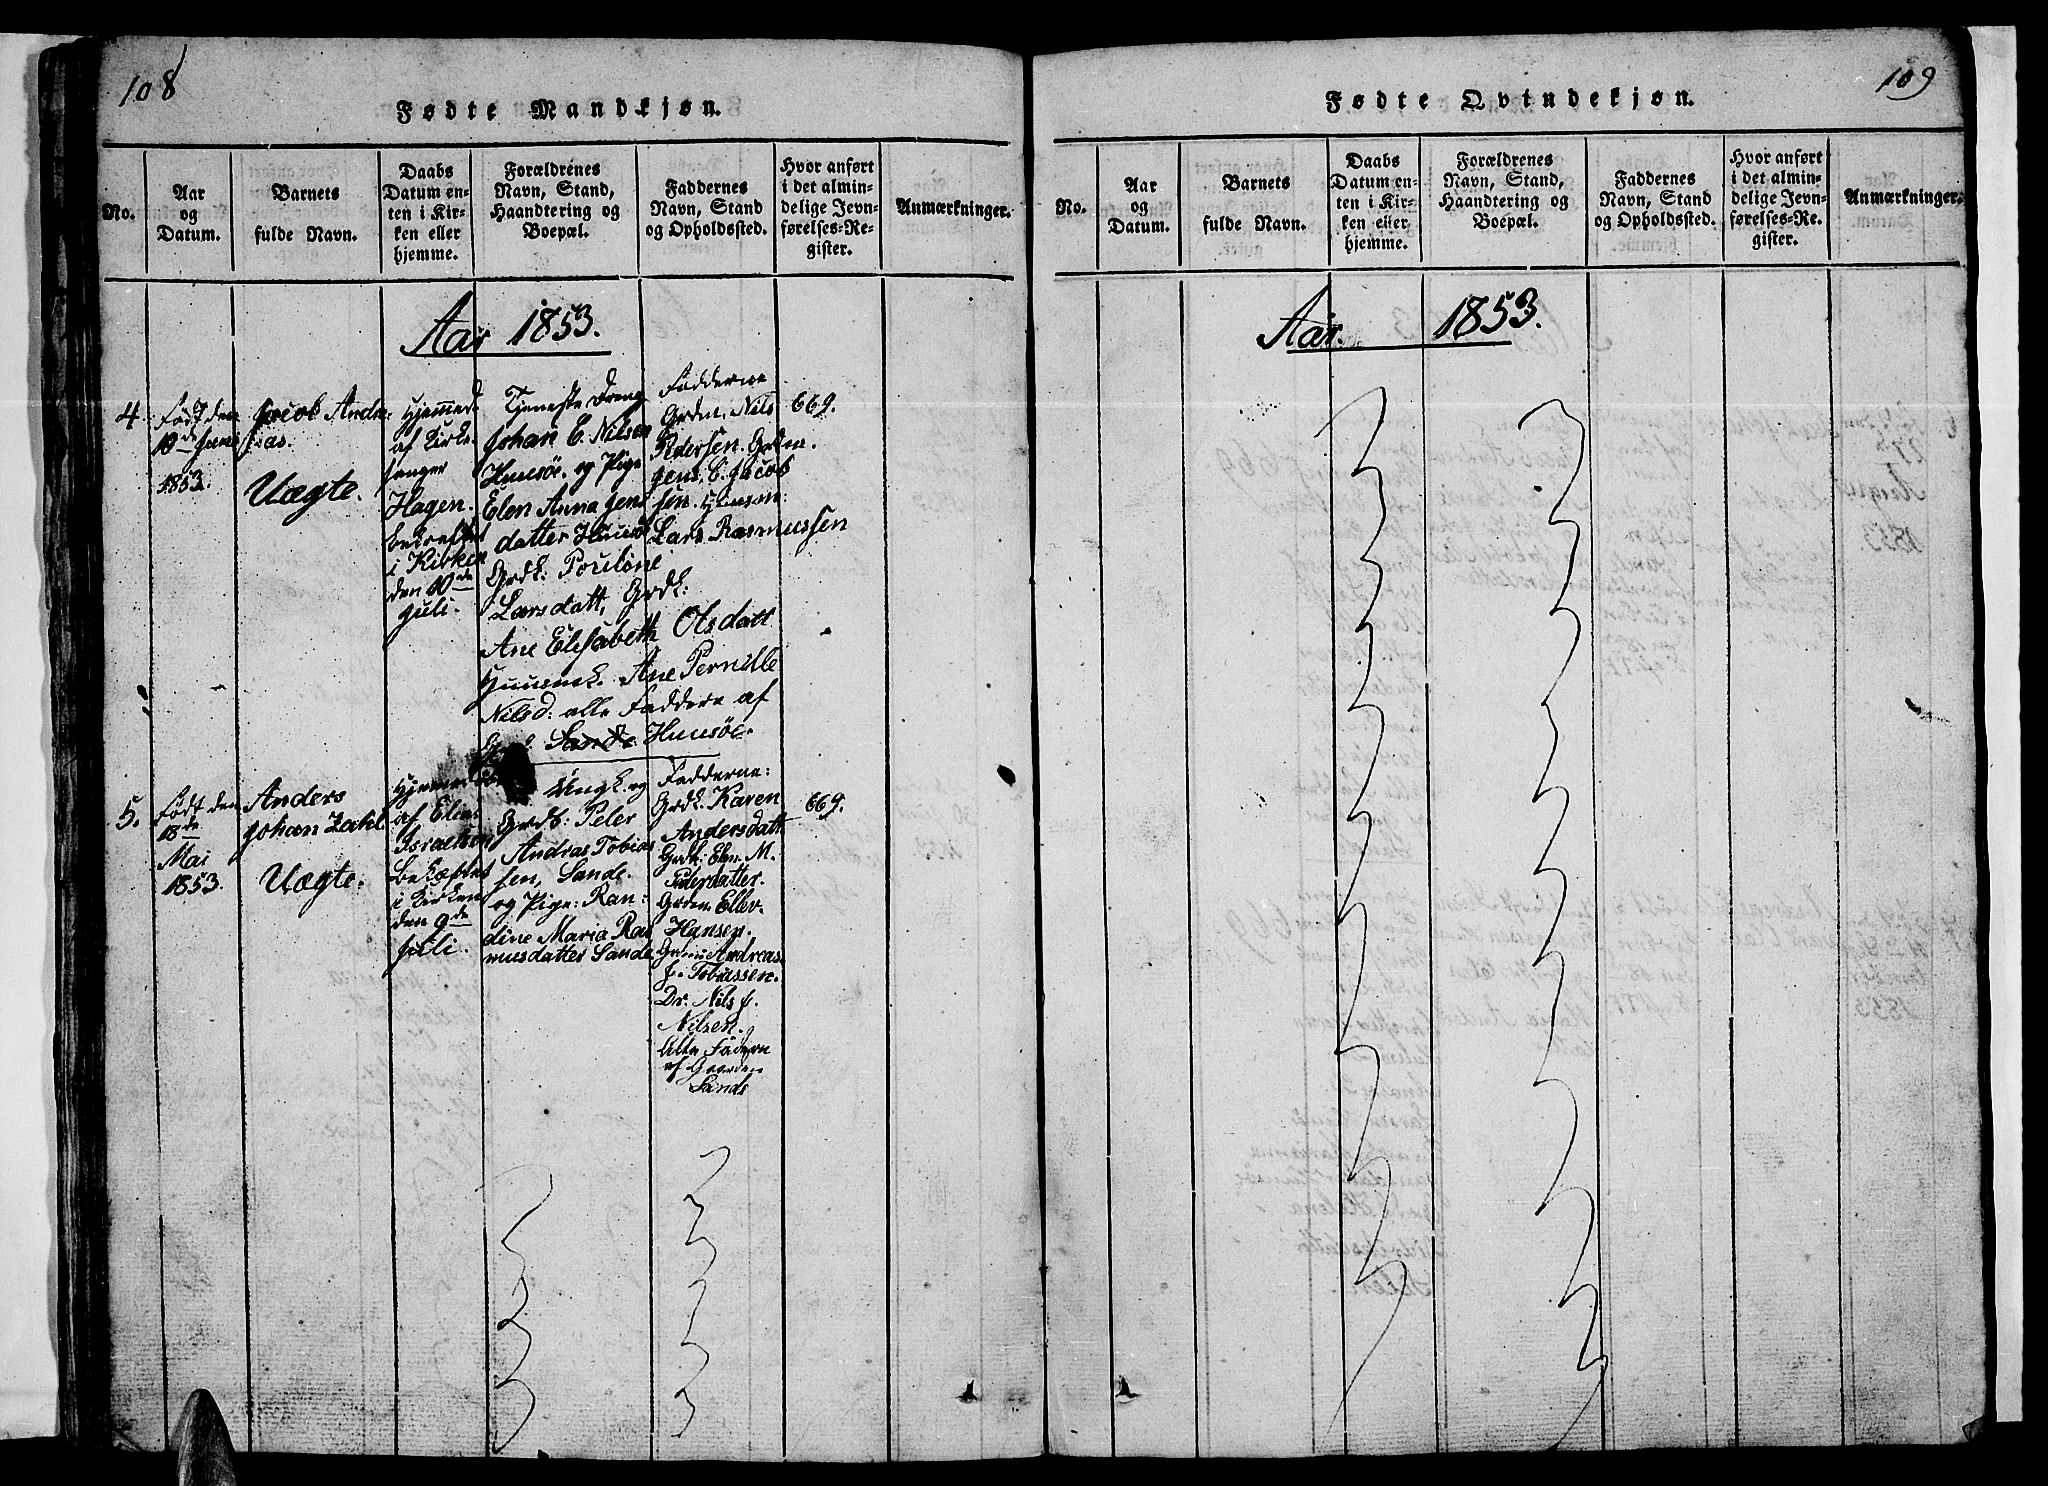 108
Fødte Mandkjøn.
No.
Aar
og
Datum.
Barnets
fulde Navn.
Daabs
Datum en-
ten i Kir-
ken eller
hjemme.
Forældrenes
Navn, Stand,
Haandtering og
Boepæl.
Faddernes
Navn, Stand
og Opholdssted.
Hvor anført
i det almin-
delige Jevn-
førelses-Re-
gister.
Anmærkninger.
Aar 1853.
4.
Født den
10de Juni
1853.
Jacob Andr.
eas.
Uægte.
Hjemmed.
af Kirke-
sanger
Hagen.
bekreftet
i Kirken
den 10de
Juli.
Tjeneste Dreng
Johan E. Nilsen
Huusöe. og Pige
Elen Anna Jens
datter Huusöe
Fadderne
Grdm. Nils
Pedersen. Grdm.
Jens. C. Jacob
sen. Huusm:
Lars Rasmussen
Grdk:
Larsdatt, Grdk:
Ane Elisabeth Olsdatt
Huusmk. Ane Pernille
Nilsd: alle Faddere af
Sande Huusöe.
669.
5.
Født den
18de
Mai
1853.
Anders
Johan Zahl
Uægte.
Hjemmedöbt
af Elias
Israelsen
Bekræftet
i Kirken
den 9de
Juli.
Ungk. og
Grdb: Peter
Andras Tobias
sen, Sande.
og Pige: Ran:
dine Maria Ras
musdatter Sande
Fadderne:
Grdk. Karen
Andersdatt
Grdk: Elen M.
Pedersdatter.
Grdm. Ellev.
Hansen.
Andreas
J. Tobiassen.
Dr. Nils J.
Nilsen.
Alle Faddern
af Gaarden
Sande
669.
109
Fødte Qvindekjøn.
No.
Aar
og
Datum.
Barnets
fulde Navn.
Daabs
Datum en-
ten i Kir-
ken eller
hjemme.
Forældrenes
Navn, Stand,
Haandtering og
Boepæl.
Faddernes
Navn, Stand
og Opholdssted.
Hvor anført
i det almin-
delige Jevn-
førelses-Re-
gister.
Anmærkninger.
Aar. 1853.